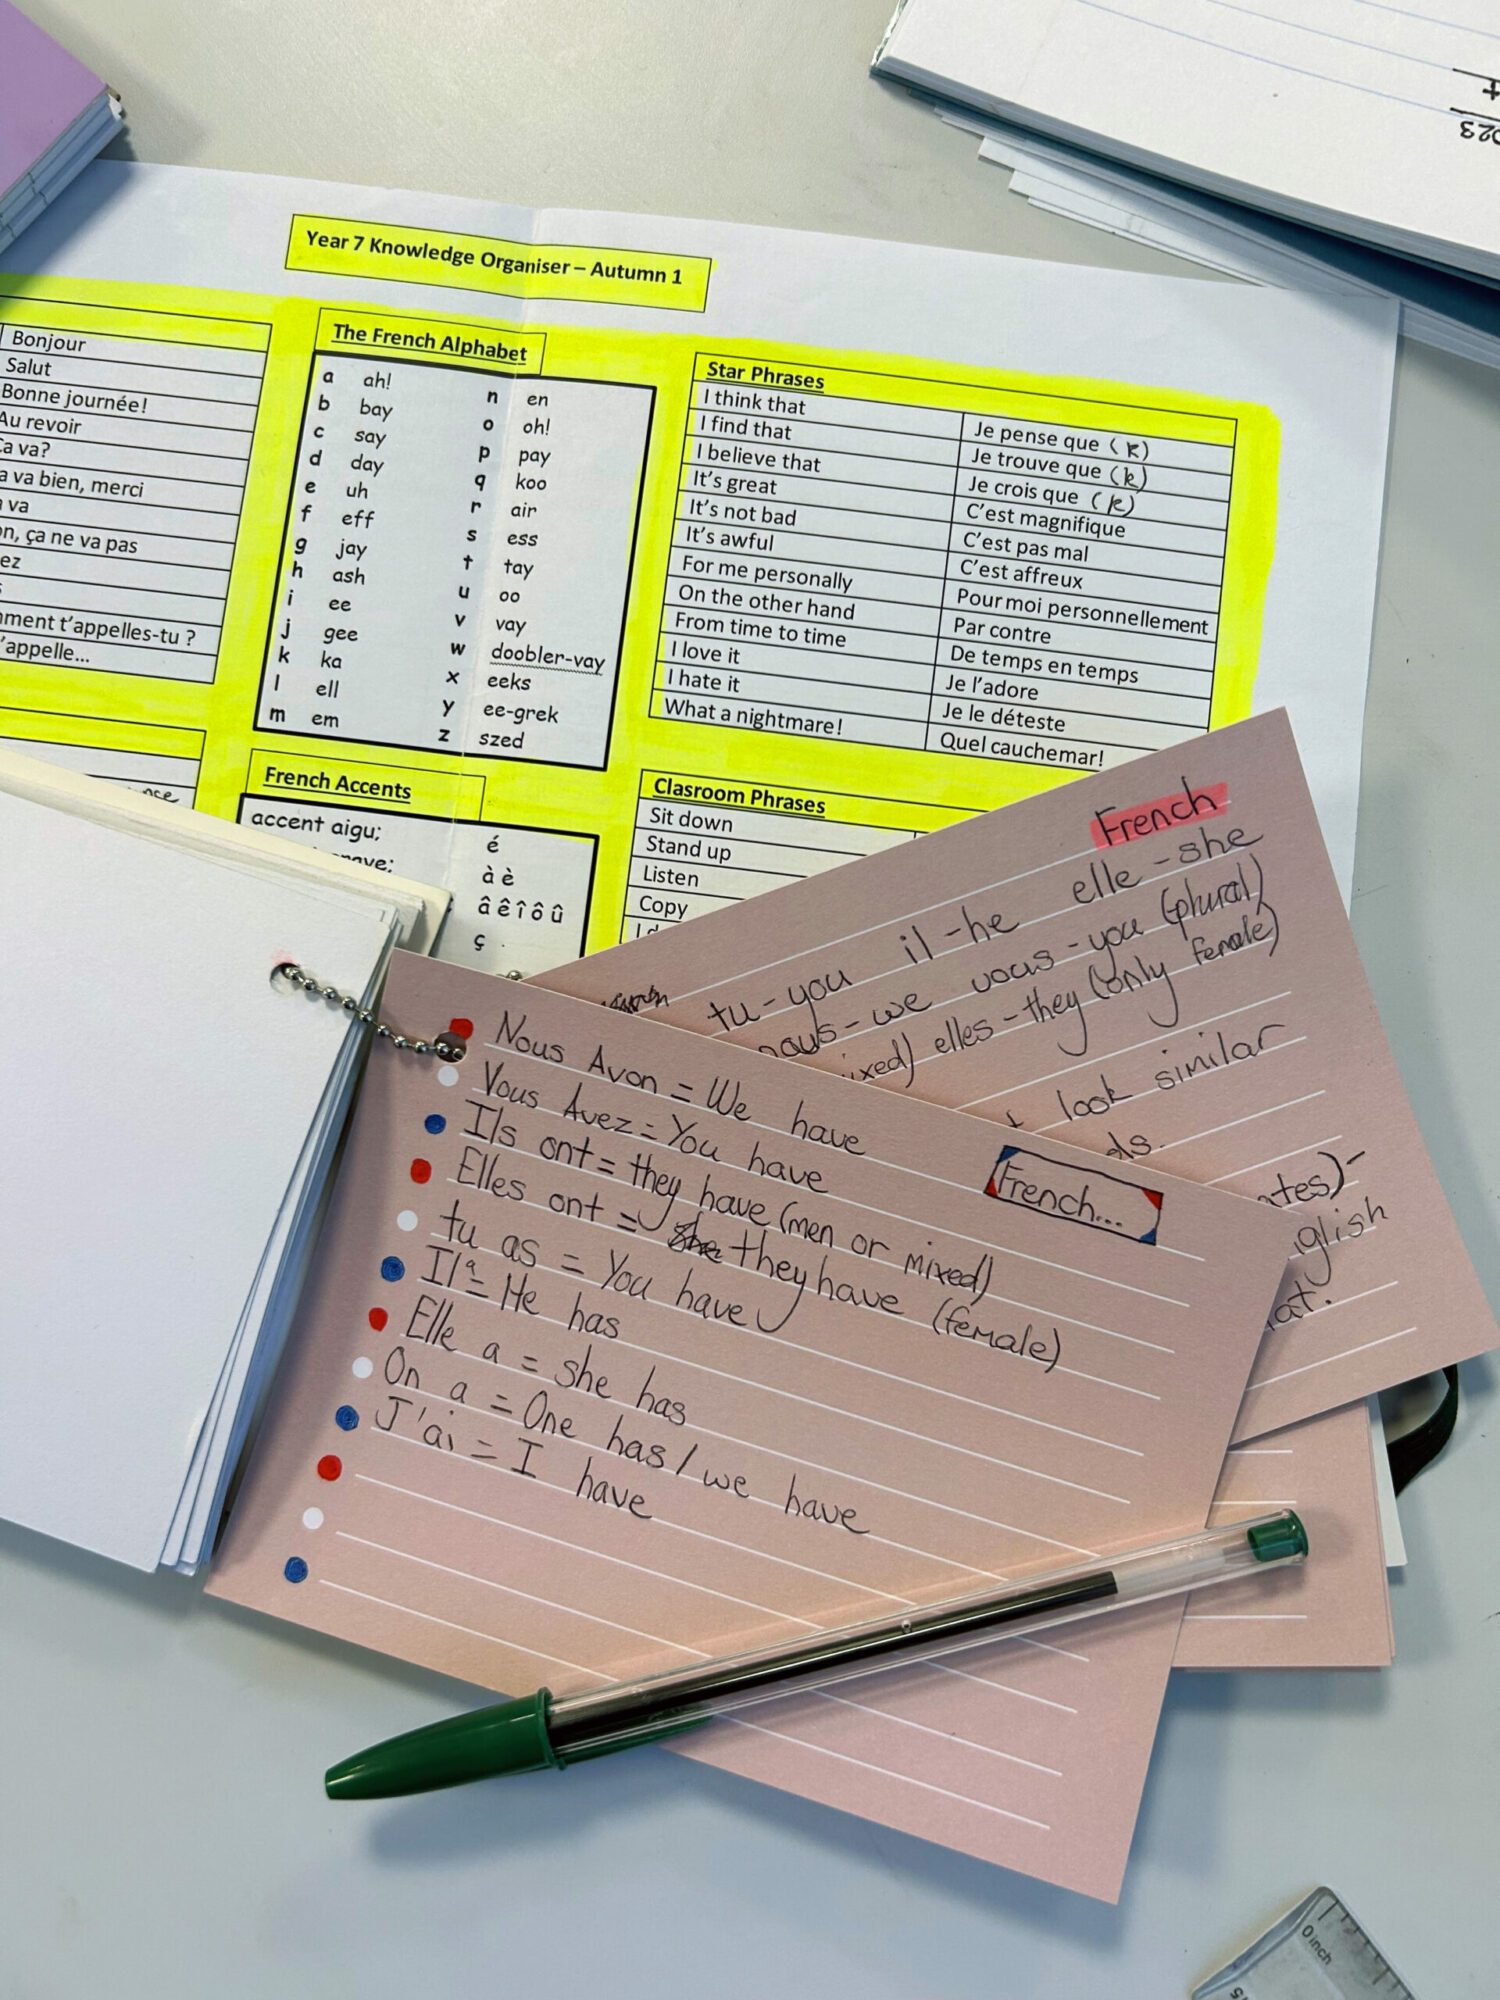 023
Year 7 Knowledge Organiser – Autumn 1
Bonjour
Salut
Bonne journée!
Au revoir
Ça va?
a va bien, merci
va
on, ça ne va pas
ez
s
mment t'appelles-tu ?
'appelle...
The French Alphabet
a ah! n en
b bay o oh!
c say p pay
d day q koo
e uh r air
f eff s ess
g jay t tay
h ash u oo
i ee v vay
j gee w doobler-vay
k ka x eeks
l ell y ee-grek
m em z szed
Star Phrases
I think that Je pense que (k)
I find that Je trouve que (k)
I believe that Je crois que (k)
It's great C'est magnifique
It's not bad C'est pas mal
It's awful C'est affreux
For me personally Pour moi personnellement
On the other hand Par contre
From time to time De temps en temps
I love it Je l'adore
I hate it Je le déteste
What a nightmare! Quel cauchemar!
French Accents
accent aigu; é
à è
â ê î ô û
ç
Clasroom Phrases
Sit down
Stand up
Listen
Copy
French
tu - you il - he elle - she
nous - we vous - you (plural)
ixed) elles - they (only female)
look similar
ds.
ates) -
glish
at.
French...
Nous Avon = We have
Vous Avez = You have
Ils ont = they have (men or mixed)
Elles ont = she they have (female)
tu as = You have
Il a = He has
Elle a = she has
On a = One has / we have
J'ai = I have
0 inch
15